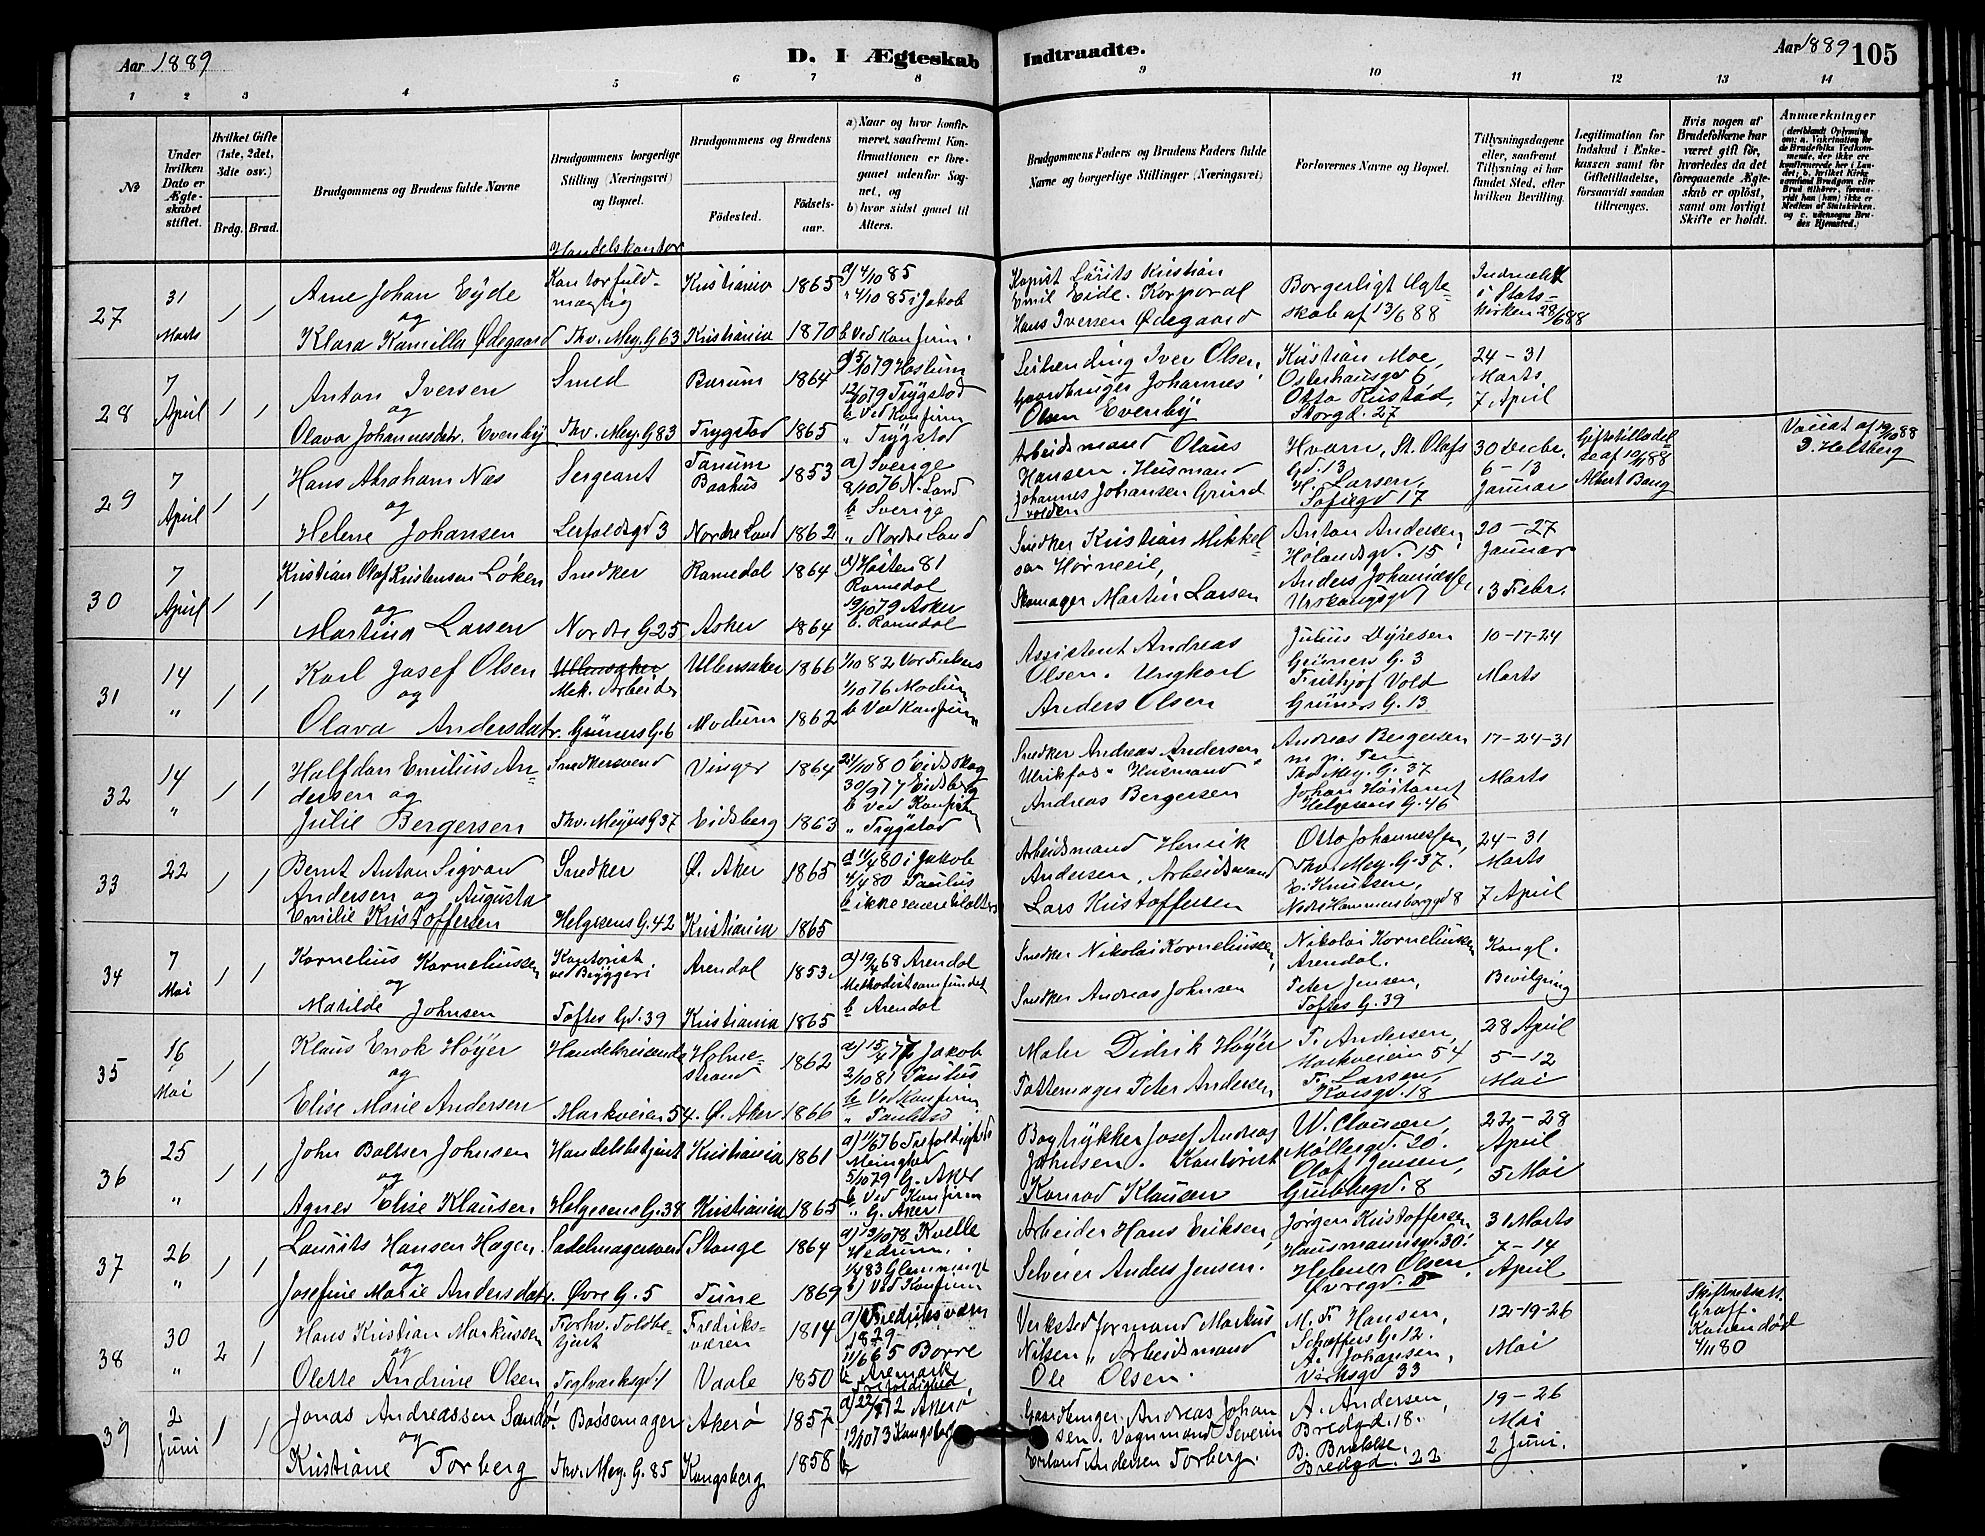 Aar 1889
D. I Ægteskab Indtraadte.
Aar 1889 105
1 2 3 4 5 6 7 8 9 10 11 12 13 14
No
Under hvilken Dato er Ægteskabet stiftet.
Hvilket Gifte (1ste, 2det, 3die osv.)
Brdg. Brud.
Brudgommens og Brudens fulde Navne
Brudgommens borgerlige Stilling (Næringsvei) og Bopæl.
Brudgommens og Brudens
Födested.
Födselsaar.
a) Naar og hvor konfirmeret, saafremt Konfirmationen er foregaaet udenfor Sognet, og
b) hvor sidst gaaet til Alters.
Brudgommens Faders og Brudens Faders fulde Navne og borgerlige Stillinger (Næringsvei)
Forlovernes Navne og Bopæl.
Tillysningsdagene eller, saafremt Tillysning ei har fundet Sted, efter hvilken Bevilling.
Legitimation for Indskud i Enkekassen samt for Giftetilladelse, forsaavidt saadan tiltrænges.
Hvis nogen af Brudefolkene har været gift för, hvorledes da det foregaaende Ægteskab er oplöst, samt om lovligt Skifte er holdt.
Anmærkninger
27
31 Marts
1 1
Arne Johan Eyde
og
Klara Kamilla Ødegaard
Handelskontor
Kontorfuldmægtig
Thv. Mey. G 63
Kristiania 1865
Kristiania 1870
a) 4/10 85
" 4/10 85 i Jakob
b Ved Konfirm.
Kopist Laurits Kristian
Emil Eide. Korporal
Hans Iversen Ødegaard
Borgerligt Ægteskab af 13/6 88
Indmeldt
i Statskirken 28/6 88
28
7 April
1 1
Anton Iversen
og
Olava Johannesdatr. Evenby
Smed
Thv. Mey. G 83
Bærum 1864
Trygstad 1865
a 5/10 79 Haslum
12/10 79 Trygstad
b Ved Konfirm
" Trygstad
Iver Olsen,
Gaardbruger Johannes
Olsen Evenby
Kristian Moe,
Osterhausgd 6
Otto Rustad,
Storgd. 27
24 - 31
Marts
7 April
29
7 April
1 1
Hans Abraham Næs
og
Helene Johansen
Sergeant
Tanum
Baahus 1853
Nordre Land 1862
a) Sverige
8/10 76 N. Land
b Sverige
" Nordre Land
Arbeidsmand Olaus
Hansen. Husmand
Johannes Johansen Grindvolden
Hvarn, St. Olafs
Gd. 13
H. Larsen,
Sofiegd 17
30 Decbr.
6 - 13
Januar
Giftetilladelse af 10/11 88
Albert Bang
Vaccat af 19/10 88
J. Holtberg
30
7 April
1 1
Kristian Olaf Kristensen Løken
og
Martina Larsen
Snedker
Nordre G 25
Romedal 1864
Asker 1864
a) Høsten 81
Romedal
19/10 79 Asker
b. Romedal
Snedker Kristian Mikkelsen
Skomager Martin Larsen
Anton Andersen,
Holandsgd. 15
Anders
Urskougsgd
20 - 27
Januar
3 Febr.
31
14 "
1 1
Karl Josef Olsen
og
Olava Andersdatr.
Ullensaker
Mek. Arbeider
Grüners G. 6
Ullensaker 1866
Modum 1862
1/10 82 Vor Frelsers
1/10 76 Modum
b Ved Konfirm
Assistent Andreas
Olsen. Ungkarl
Anders Olsen
Julius Dyresen
Grüners G. 3
Frithjof Vold
Grüners G. 13
10-17-24
Marts
32
14 "
1 1
Halfdan Emilius Andersen og
Julie Bergersen
Snedkersvend
Thv. Meyers G 37
Vinger 1864
Eidsberg 1863
24/10 80 Eidskog
30/9 77 Eidsberg
b Ved Konfirm
" Trygstad
Snedker Andreas Andersen
Ulrikfos " Husmand
Andreas Bergersen
Andreas Bergersen
Thv Mey. G. 37
Johan
Helgesens G. 46
17-24-31
Marts
33
22
1 1
Bernt Anton Sigvard
Andersen og Augusta
Emilie Kristoffersen
Snedker
Helgesens G. 42
Ø. Aker 1865
Kristiania 1865
a 11/4 80 i Jakob
4/4 80 Paulus
b ikke senere til alters
Arbeidsmand Henrik
Andersen, Arbeidsmand
Lars Kristoffersen
Otto Johannessen,
Thv. Mey. G. 37.
E. Knutsen,
Nedre Hammersborggd 8
24 - 31
Marts
7 April
34
7 Mai
1 1
Kornelius Korneliussen
og
Matilde Johnsen
Kontorist
ved Bryggeri
Toftes Gd. 39
Arendal 1853
Kristiania 1865
a) 19/4 68 Arendal
Methodistsamfundet
b Arendal
Snedker Nikolai Korneliussen,
Snedker Andreas Johnsen
Nikolai Korneliussen
Arendal.
Peter Jensen,
Toftes G. 39
Kongl.
Bevilgning
35
16 Mai
1 1
Klaus Enok Høyer
og
Elise Marie Andersen
Handelsreisende
Markveien 54.
Holmestrand 1862
Ø. Aker 1866
a) 15/4 77 Jakob
2/10 81 Paulus
b Ved Konfirm
" Paulus
Maler Didrik Høyer
Pottemager Peter Andersen,
F. Andersen,
Markveien 54
Fr. Larsen,
Korsgd. 18
28 April
5 - 12
Mai
36
25 "
1 1
John Baltser Johnsen
og
Agnes Elise Klausen
Handelsbetjent
Helgesens G. 38
Kristiania 1861
Kristiania 1865
a) 11/6 76 Trefoldigheds
Menighed
5/10 79 G. Aker
b Ved Konfirm
" G. Aker
Bogtrykker Josef Andreas
Johnsen. Kontorist
Konrad Klausen
W. Clausen,
Møllergd. 20.
Olaf Jensen,
Grubbegd. 8
22 - 28
April
5 Mai
37
26 "
1 1
Laurits Hansen Hagen
og
Josefine Marie Andersdatr.
Sadelmagersvend
Øvre G. 5
Stange 1864
Tune 1869
a) 13/10 78 Kvelle
Hedrum.
1/4 83 Glemminge
b) Ved Konfirm
Arbeider Hans Eriksen,
Selveier Anders Jensen.
Jørgen Kristoffersen
Hausmannsgd. 30.
Helmer Olsen,
Øvregd. 5
31 Marts
7 - 14
April
38
30 "
2 1
Hans Kristian Markussen
og
Olette Andrine Olsen
Forhv. Toldbetjent
Teglværksgd 1
Fredriksværn 1814
Vaale 1850
a) Fredriksværn
1829
11/6 65 Borre
b Aremark
Trefoldighed
Verkstedformand Markus
Nilsen, Arbeidsmand
Ole Olsen.
M. F. Hansen,
Schæffers G. 12.
A. Johansen,
Verksgd 33
12-19-26
Mai
Skifteretsatt.
Graff.
Konen død
4/11 80
39
2 Juni
1 1
Jonas Andreassen Sandø.
og
Kristiane Torberg
Bøssemager
Thv. Mey. G. 85
Akerø 1857
Kongsberg 1858
a) 22/5 12 Akerø
19/10 73 Kongsberg
b
Gaardbruger Andreas Johansen. Vognmand Severin
Erland Andersen Torberg.
A. Andersen,
Bredgd. 18.
B.
Bredgd. 22
19 - 26
Mai
2 Juni.